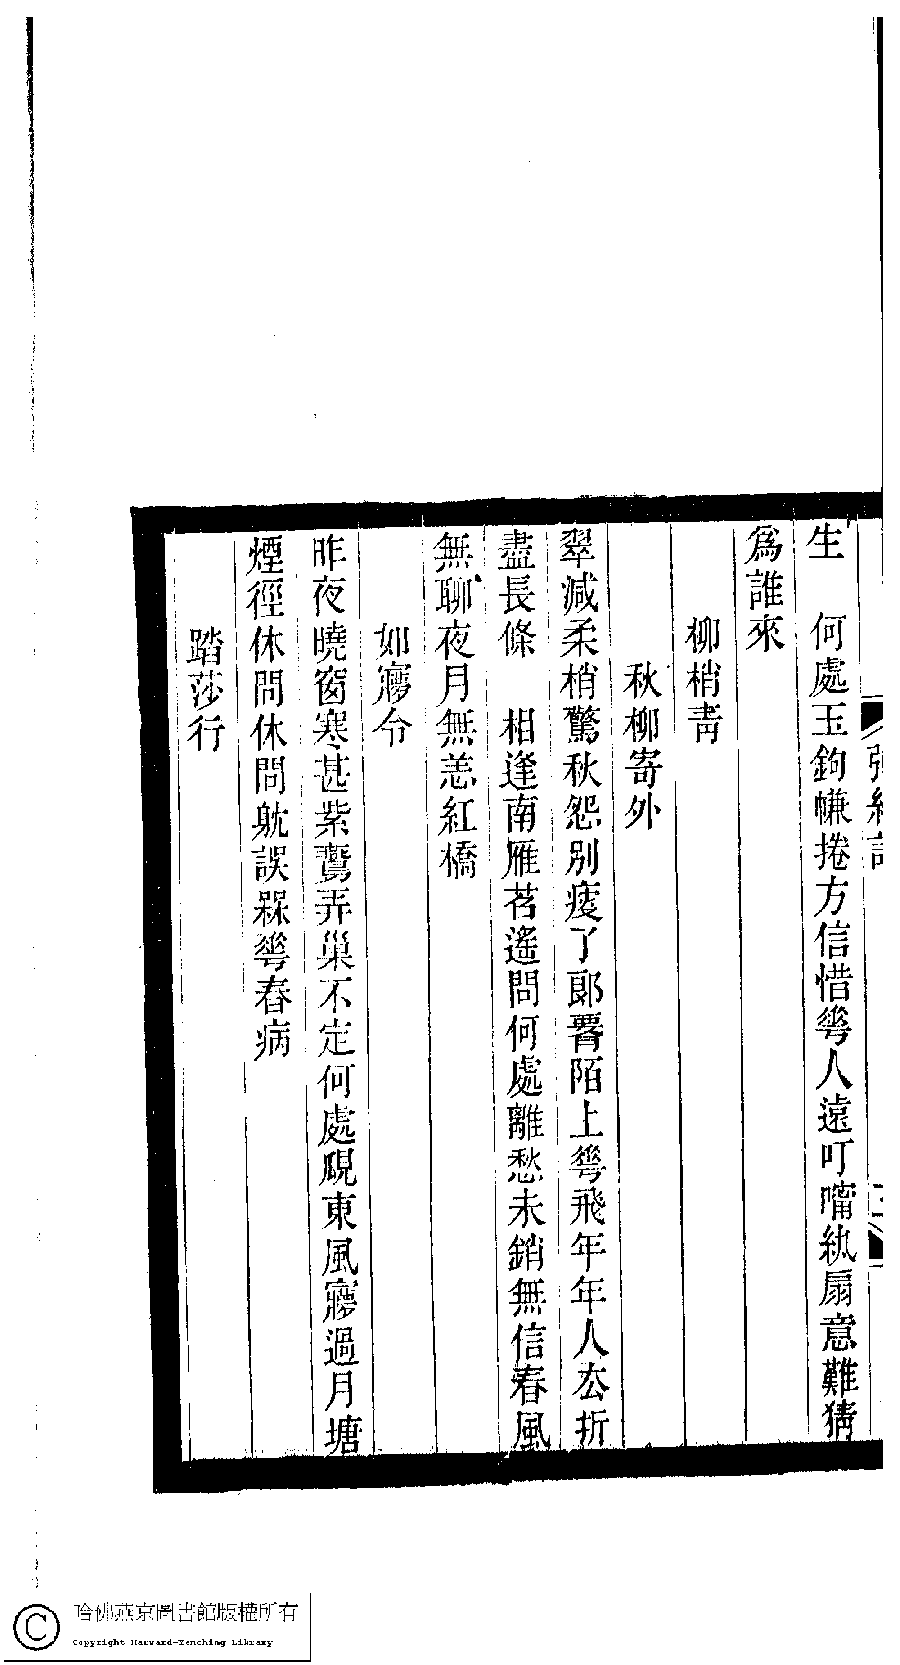 生　何處玉鉤㡘捲方信惜蕐人遠叮嚀紈扇意難猜
爲誰來
柳梢靑
秋柳寄外
翠減柔梢驚秋怨別瘦了郞𥇛陌上蕐飛年年人厺折
盡長條　相逢南雁苕遙問何處離愁未銷無信春風
無聊夜月無恙紅橋
如寢令
昨夜曉窗寒甚紫鸞弄巢不定何處覛東風寢過月塘
煙徑休問休問躭誤槑蕐春病
踏莎行
哈佛燕京圖書館版權所有
Copyright Harvard-Yenching Library